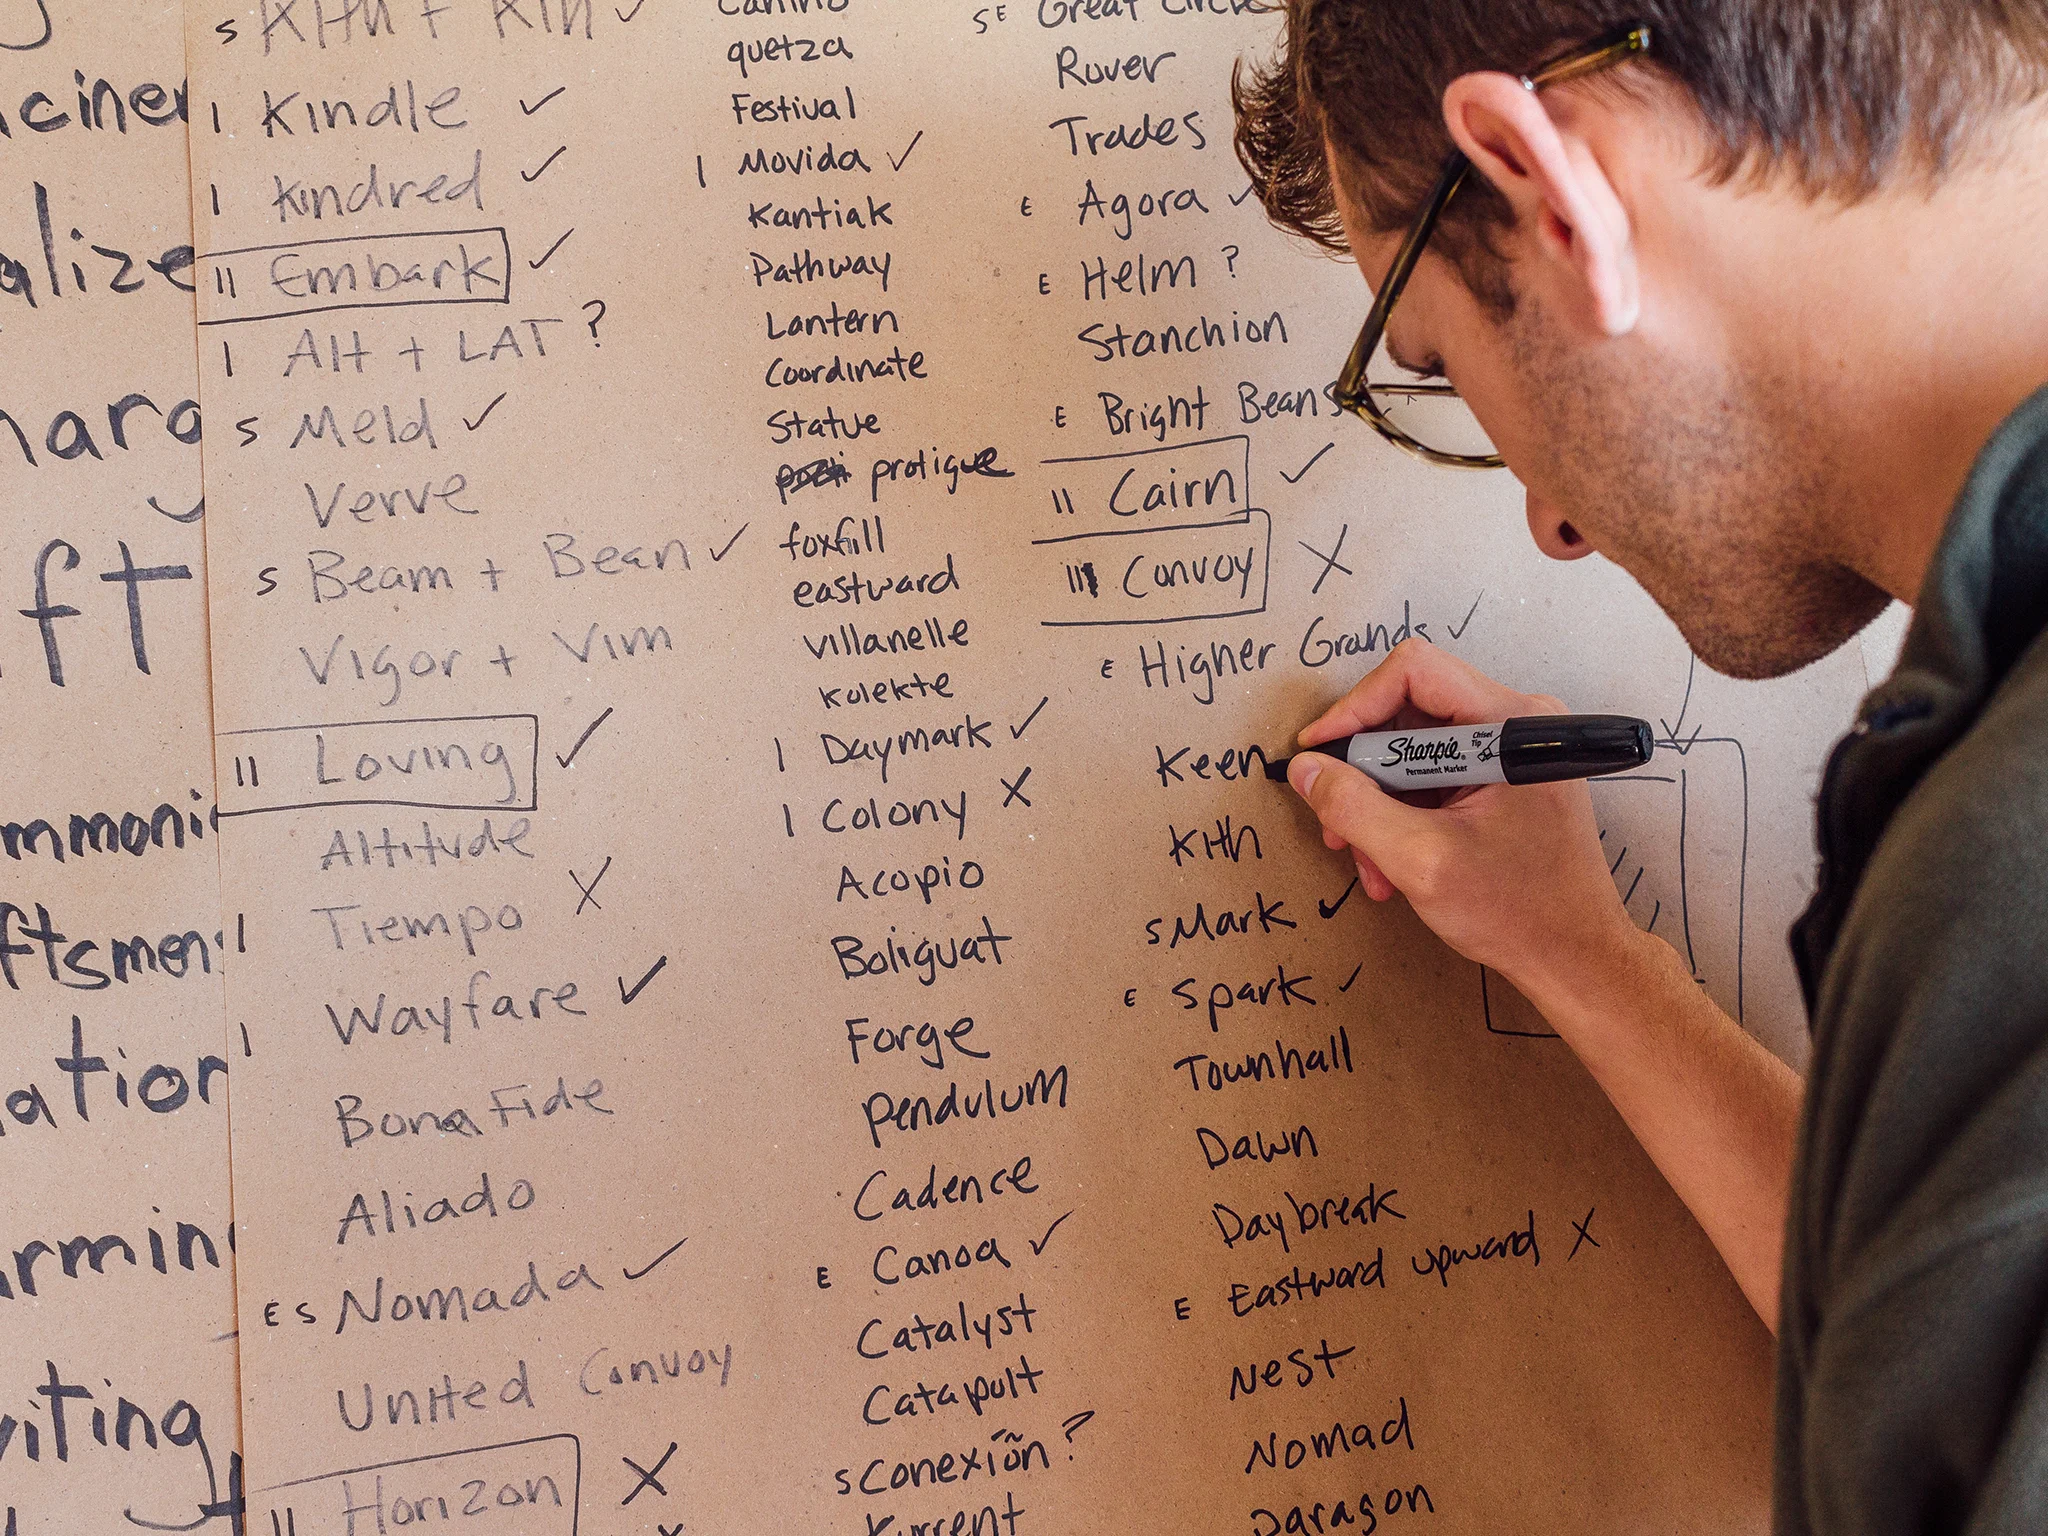 S Kith + Kin ✓
I Kindle ✓
I Kindred ✓
II Embark ✓
I Alt + LAT ?
S Meld ✓
Verve
S Beam + Bean ✓
Vigor + Vim
II Loving ✓
Altitude
I Tiempo X
I Wayfare ✓
Bona Fide
Aliado
E S Nomada ✓
United Convoy
II Horizon X
quetza
Festival
I Movida ✓
Kantiak
Pathway
Lantern
Coordinate
Statue
protigue
foxfill
eastward
villanelle
Kolekte
I Daymark ✓
I Colony X
Acopio
Boliguat
Forge
Pendulum
Cadence
E Canoa ✓
Catalyst
Catapult
S Conexión ?
Kurrent
S E Great Circle
Rover
Trades
E Agora ✓
E Helm ?
Stanchion
E Bright Beans
II Cairn ✓
III Convoy X
E Higher Grounds ✓
Keen
Kith
S Mark ✓
E Spark ✓
Townhall
Dawn
Daybreak
E Eastward upward X
Nest
Nomad
Paragon
Sharpie
Chisel Tip
Permanent Marker